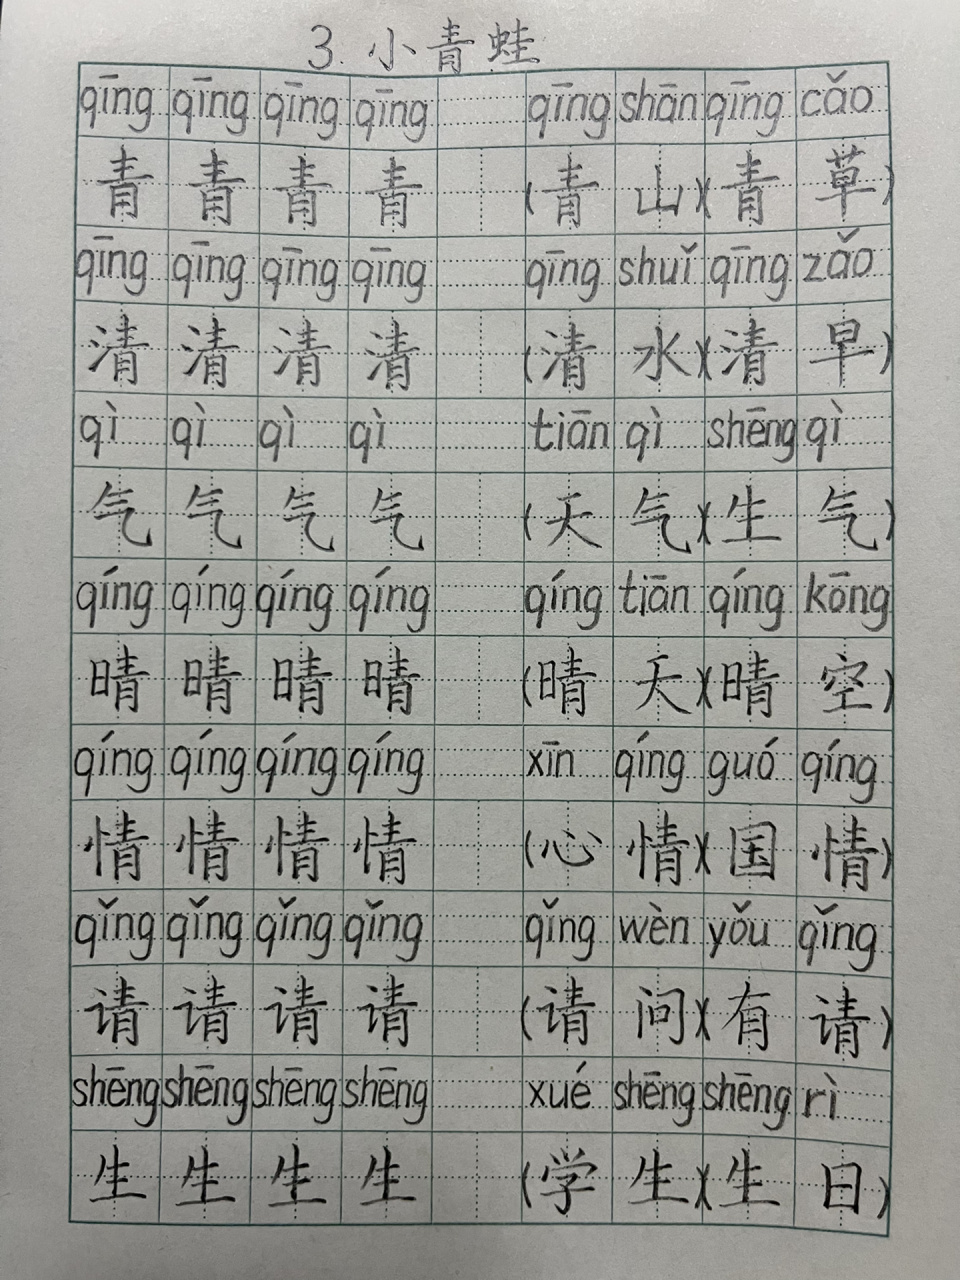 3. 小青蛙
qīng qīng qīng qīng qīng shān qīng cǎo
青 青 青 青 (青 山)(青 草)
qīng qīng qīng qīng qīng shuǐ qīng zǎo
清 清 清 清 (清 水)(清 早)
qì qì qì qì tiān qì shēng qì
气 气 气 气 (天 气)(生 气)
qíng qíng qíng qíng qíng tiān qíng kōng
晴 晴 晴 晴 (晴 天)(晴 空)
qíng qíng qíng qíng xīn qíng guó qíng
情 情 情 情 (心 情)(国 情)
qǐng qǐng qǐng qǐng qǐng wèn yǒu qǐng
请 请 请 请 (请 问)(有 请)
shēng shēng shēng shēng xué shēng shēng rì
生 生 生 生 (学 生)(生 日)